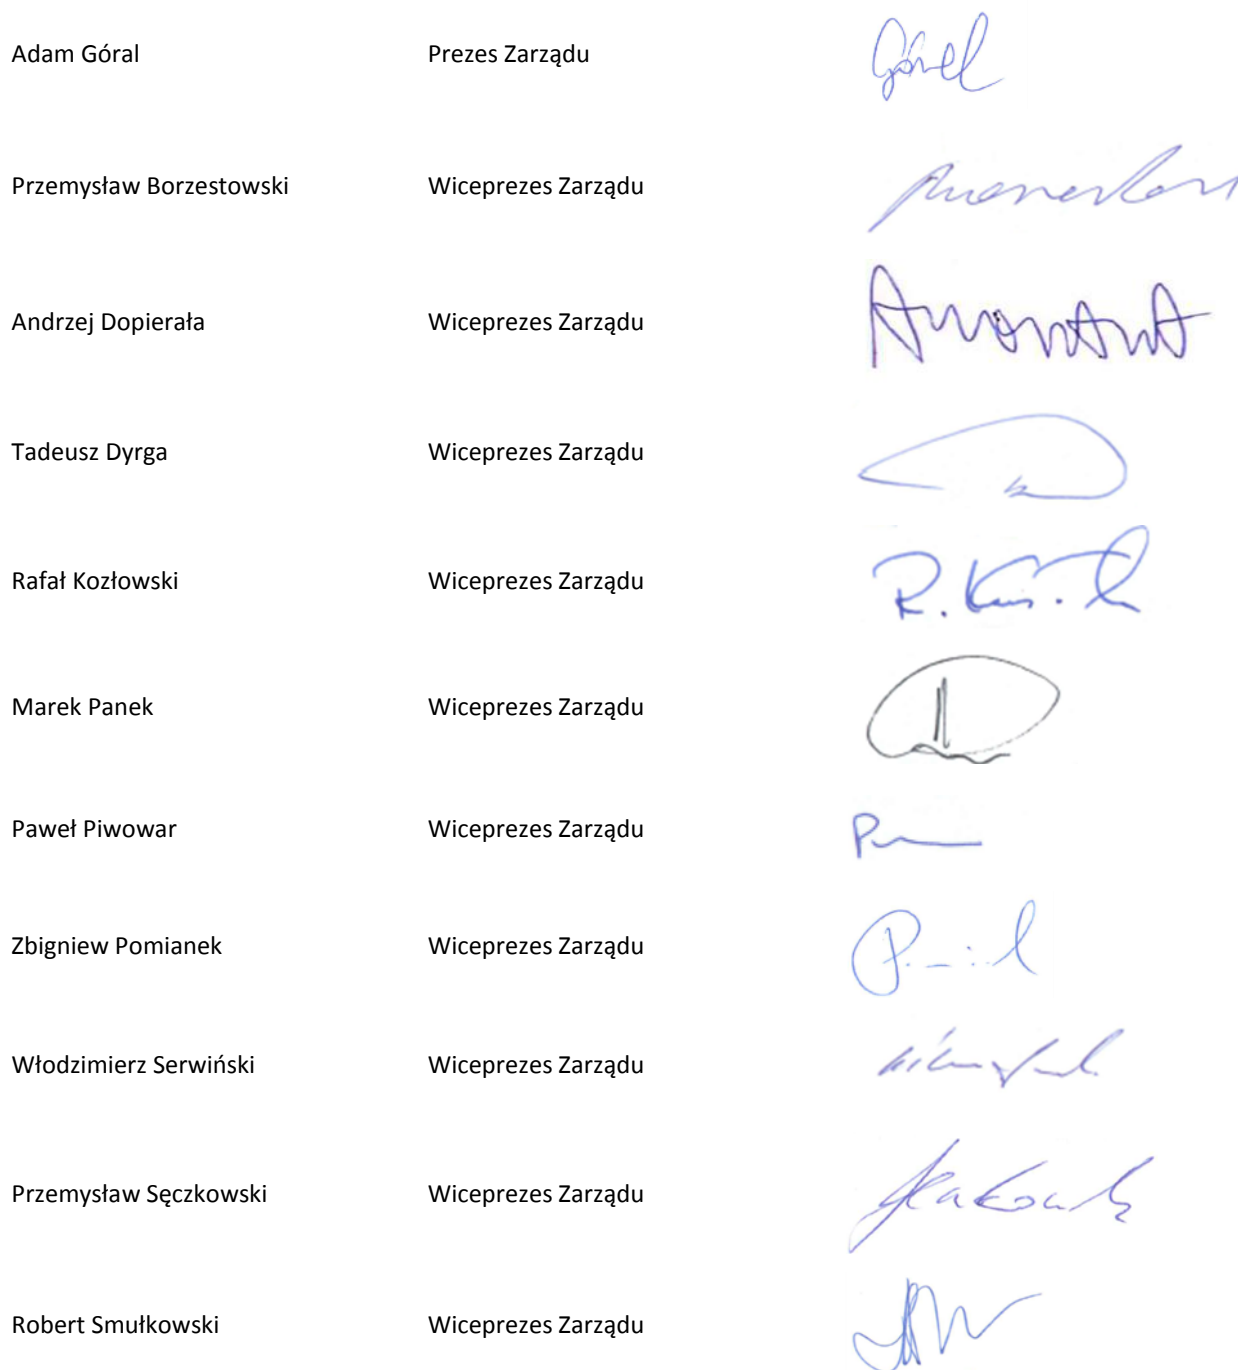 Adam Góral Prezes Zarządu Góral
Przemysław Borzestowski Wiceprezes Zarządu
Andrzej Dopierała Wiceprezes Zarządu
Tadeusz Dyrga Wiceprezes Zarządu
Rafał Kozłowski Wiceprezes Zarządu R.
Marek Panek Wiceprezes Zarządu
Paweł Piwowar Wiceprezes Zarządu
Zbigniew Pomianek Wiceprezes Zarządu
Włodzimierz Serwiński Wiceprezes Zarządu
Przemysław Sęczkowski Wiceprezes Zarządu
Robert Smułkowski Wiceprezes Zarządu